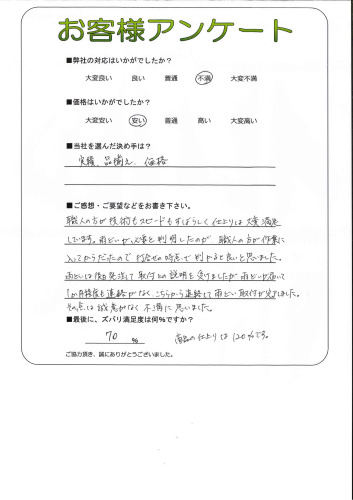 お客様アンケート
■弊社の対応はいかがでしたか?
大変良い 良い 普通 不満 大変不満
■価格はいかがでしたか?
大変安い 安い 普通 高い 大変高い
■当社を選んだ決め手は?
実績、品揃え、価格
■ご感想・ご要望などをお書き下さい。
職人の方が技術もスピードもすばらしく仕上りは大変満足
しています。雨どいが必要と判明したのが職人の方が作業に
入ってからだったので打合せの時点で判かると良いと思いました。
雨どいは後日発注して取付との説明を受けましたが雨どいが届いて
1か月程度も連絡がなく、こちらから連絡して雨どい取付が完了しました。
その点は誠意がなく不満に思いました。
■最後に、ズバリ満足度は何%ですか?
70 % 商品の仕上りは120%です。
ご協力頂き、誠にありがとうございました。